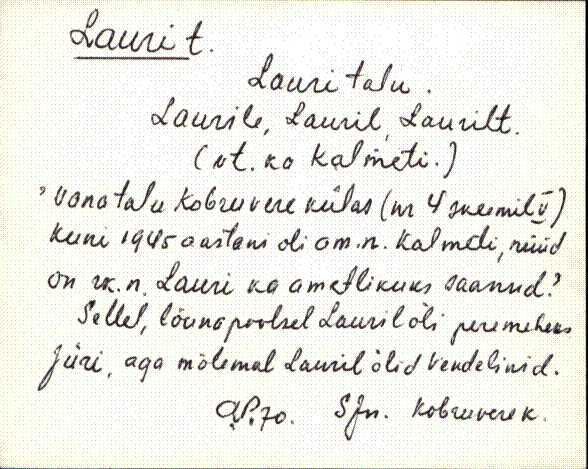 Lauri t.
Lauri talu.
Laurile, Lauril, Laurilt.
(vt. ka Kalmeti.)
"vana talu Kobruvere külas (nr 4 skeemil V)
Kuni 1945 aastani oli am.n. Kalmeti, nüüd
on rk.n. Lauri ka ametlikuks saanud."
Sellel, lõunapoolsel Lauril õli peremeheks
Jüri, aga mõlemal Lauril õlid Vendelinid.
A.P. 70. SJn. Kobruvere k.